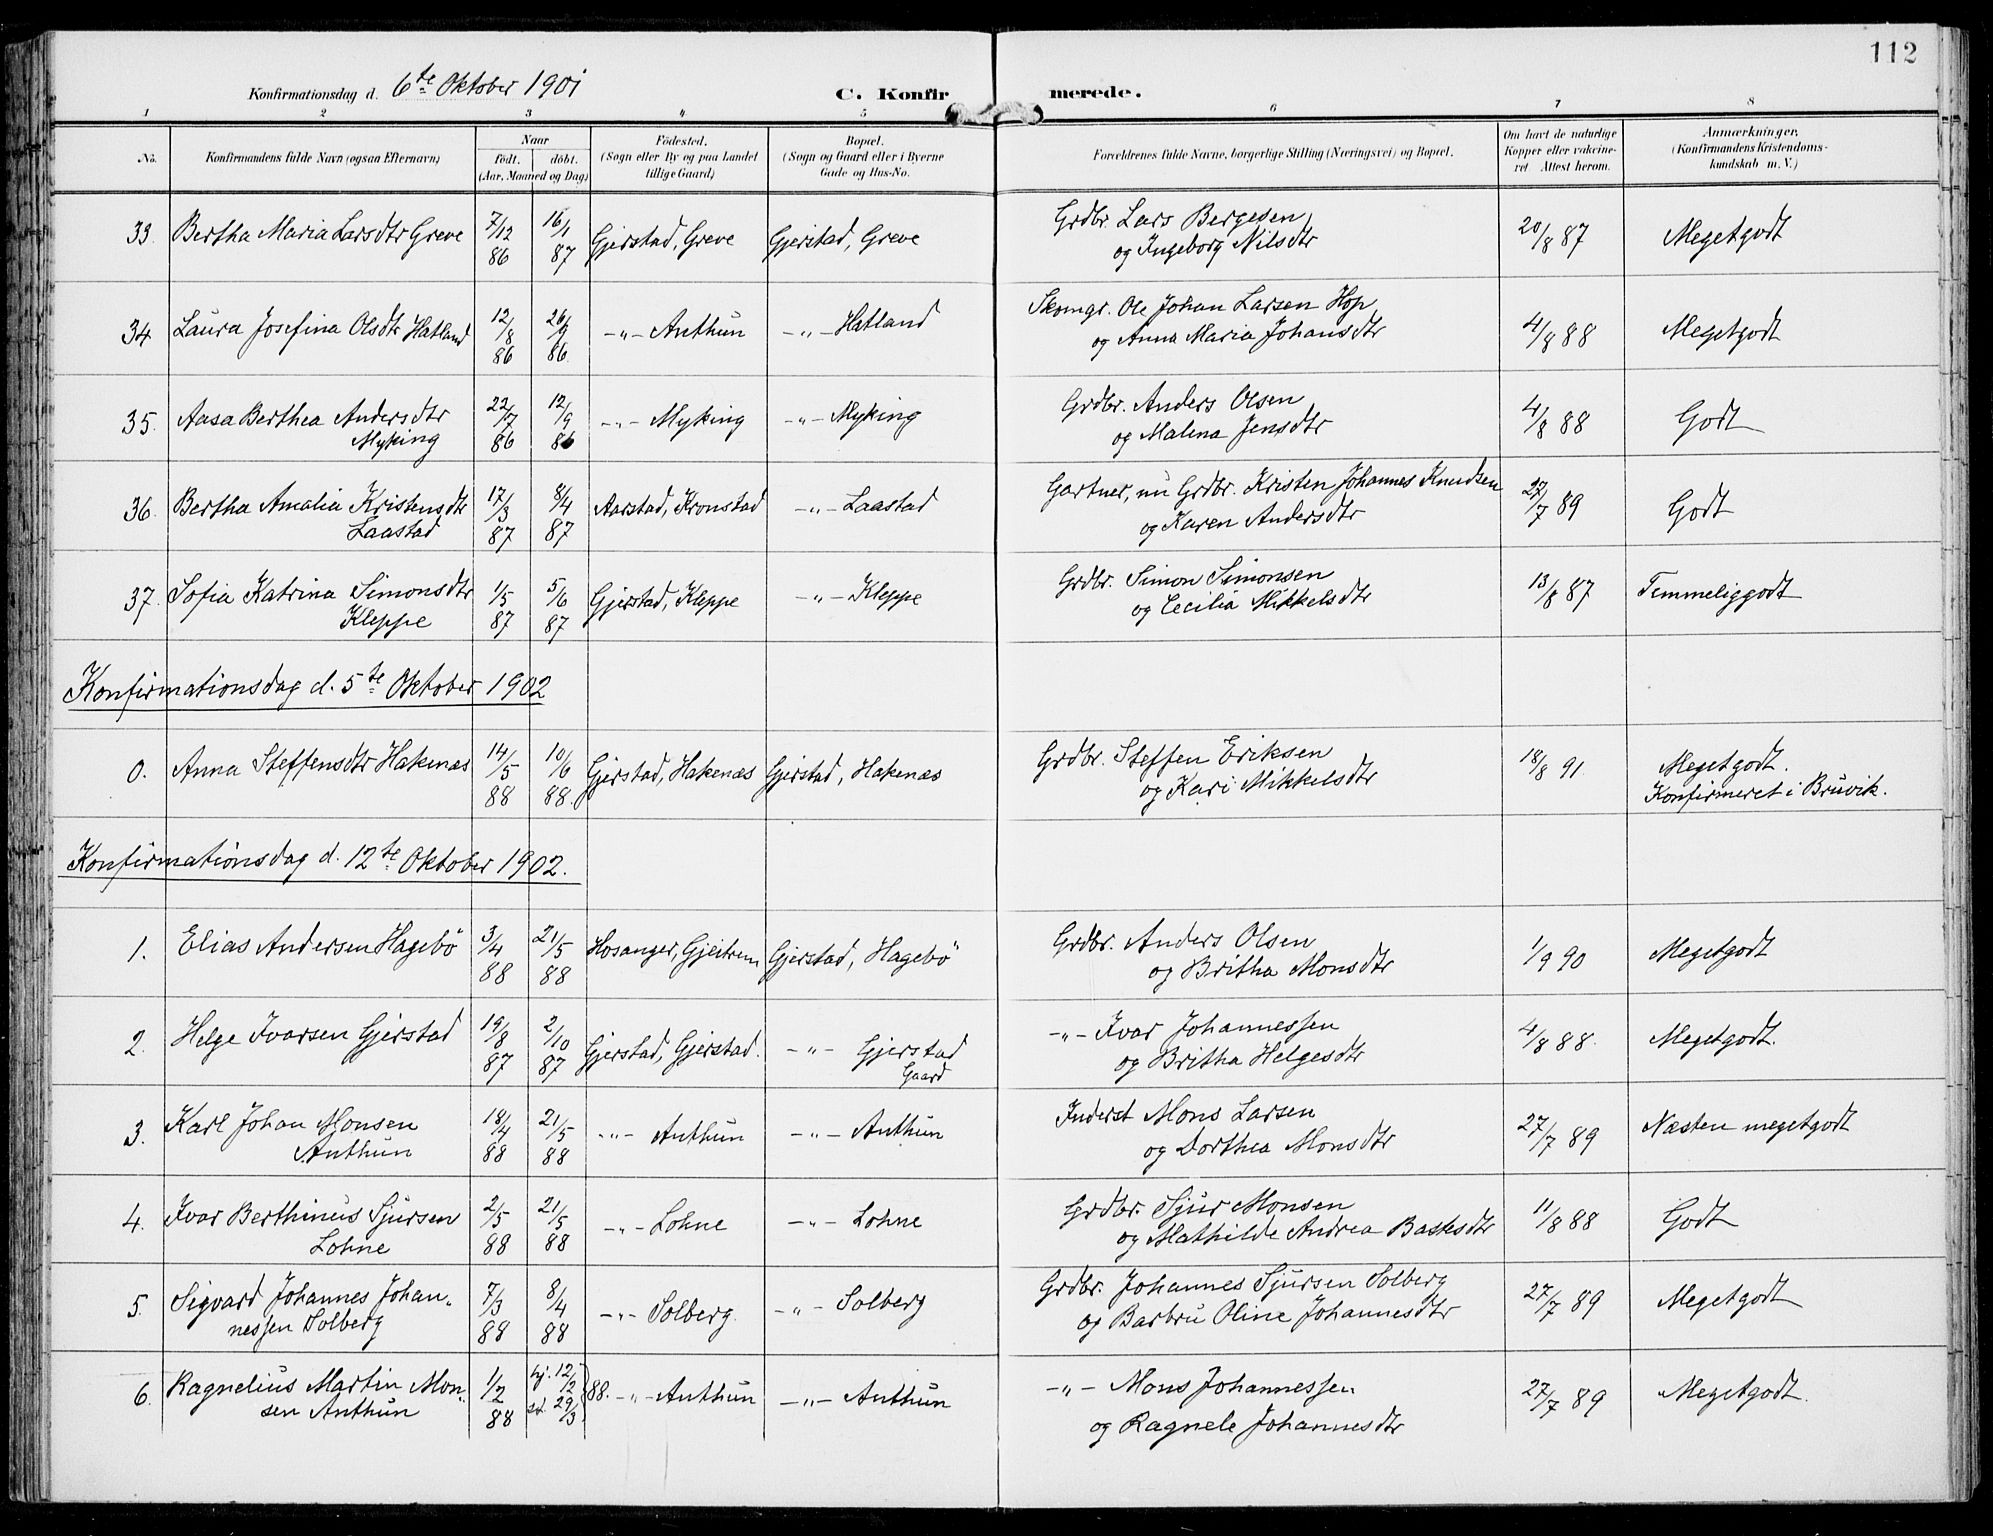 112
Konfirmationsdag d. 6te Oktober 1901
C. Konfirmerede.
1 2 3 4 5 6 7 8
No. Konfirmandens fulde Navn (ogsaa Efternavn) Naar födt. döbt. (Aar, Maaned og Dag) Födested. (Sogn eller By og paa Landet tillige Gaard) Bopæl. (Sogn og Gaard eller i Byerne Gade og Hus-No. Forældrenes fulde Navne, borgerlige Stilling (Næringsvei) og Bopæl. Om havt de naturlige Kopper eller vakcineret Attest herom. Anmærkninger, (Konfirmandens Kristendomskundskab m. V.)
33. Bertha Maria Larsdtr Greve 7/12 86 16/1 87 Gjerstad, Greve Gjerstad, Greve Grdbr. Lars Bergesen 20/8 87 Megetgodt
og Ingeborg Nilsdtr
34. Laura Josefina Olsdtr Hatland 12/8 86 26/9 86. -"- Anthun -"- Hatland Skomgr. Ole Johan Larsen Hop 4/8 88 Megetgodt
og Anna Maria Johansdtr
35. Aasa Berthea Andersdtr 22/7 86 12/9 86 -"- Myking -"- Myking Grdbr. Anders Olsen 4/8 88 Godt
Myking og Malena Jensdtr
36. Bertha Amalia Kristensdtr 17/3 87 8/4 87 Aarstad, Kronstad -"- Laastad Gartner, nu Grdbr. Kristen Johannes Knudsen 27/7 89 Godt
Laastad og Karen Andersdtr
37. Sofia Katrina Simonsdtr 1/5 87 5/6 87 Gjerstad, Kleppe -"- Kleppe Grdbr. Simon Simonsen 13/8 87 Temmeliggodt
Kleppe og Cecilia Mikkelsdtr
Konfirmationsdag d. 5te Oktober 1902
0. Anna Steffensdtr Hakenæs 14/5 88 10/6 88. Gjerstad, Hakenæs Gjerstad, Hakenæs Grdbr. Steffen Eriksen 18/8 91. Megetgodt.
og Kari Mikkelsdtr Konfirmeret i Bruvik.
Konfirmationsdag d. 12te Oktober 1902.
1. Elias Andersen Hagebö 3/4 88 21/5 88 Hosanger, Gjeitrem Gjerstad, Hagebö Grdbr. Anders Olsen 1/9 90 Megetgodt
og Britha Monsdtr
2. Helge Ivarsen Gjerstad 19/8 87 2/10 87 Gjerstad, Gjerstad. -"- Gjerstad Gaard -"- Ivar Johannessen 4/8 88. Megetgodt.
og Britha Helgesdtr
3. Karl Johan Monsen 18/4 88 21/5 88 -"- Anthun -"- Anthun Inderst Mons Larsen 27/7 89 Næsten megetgodt
Anthun og Dorthea Monsdtr
4. Ivar Berthinus Sjursen 2/5 88 21/5 88 -"- Lohne -"- Lohne Grdbr. Sjur Monsen 11/8 88 Godt
Lohne og Mathilde Andrea Bastesdtr
5. Sigvard Johannes Johan- 7/3 88 8/4 88 -"- Solberg. -"- Solberg Grdbr. Johannes Sjursen Solberg 27/7 89 Megetgodt
nessen Solberg og Barbru Oline Johannesdtr
6. Ragnelius Martin Mon- 1/2 88 hj. 12/2 st. 29/3 88. -"- Anthun -"- Anthun -"- Mons Johannessen 27/7 89 Megetgodt.
sen Anthun og Ragnele Johannesdtr